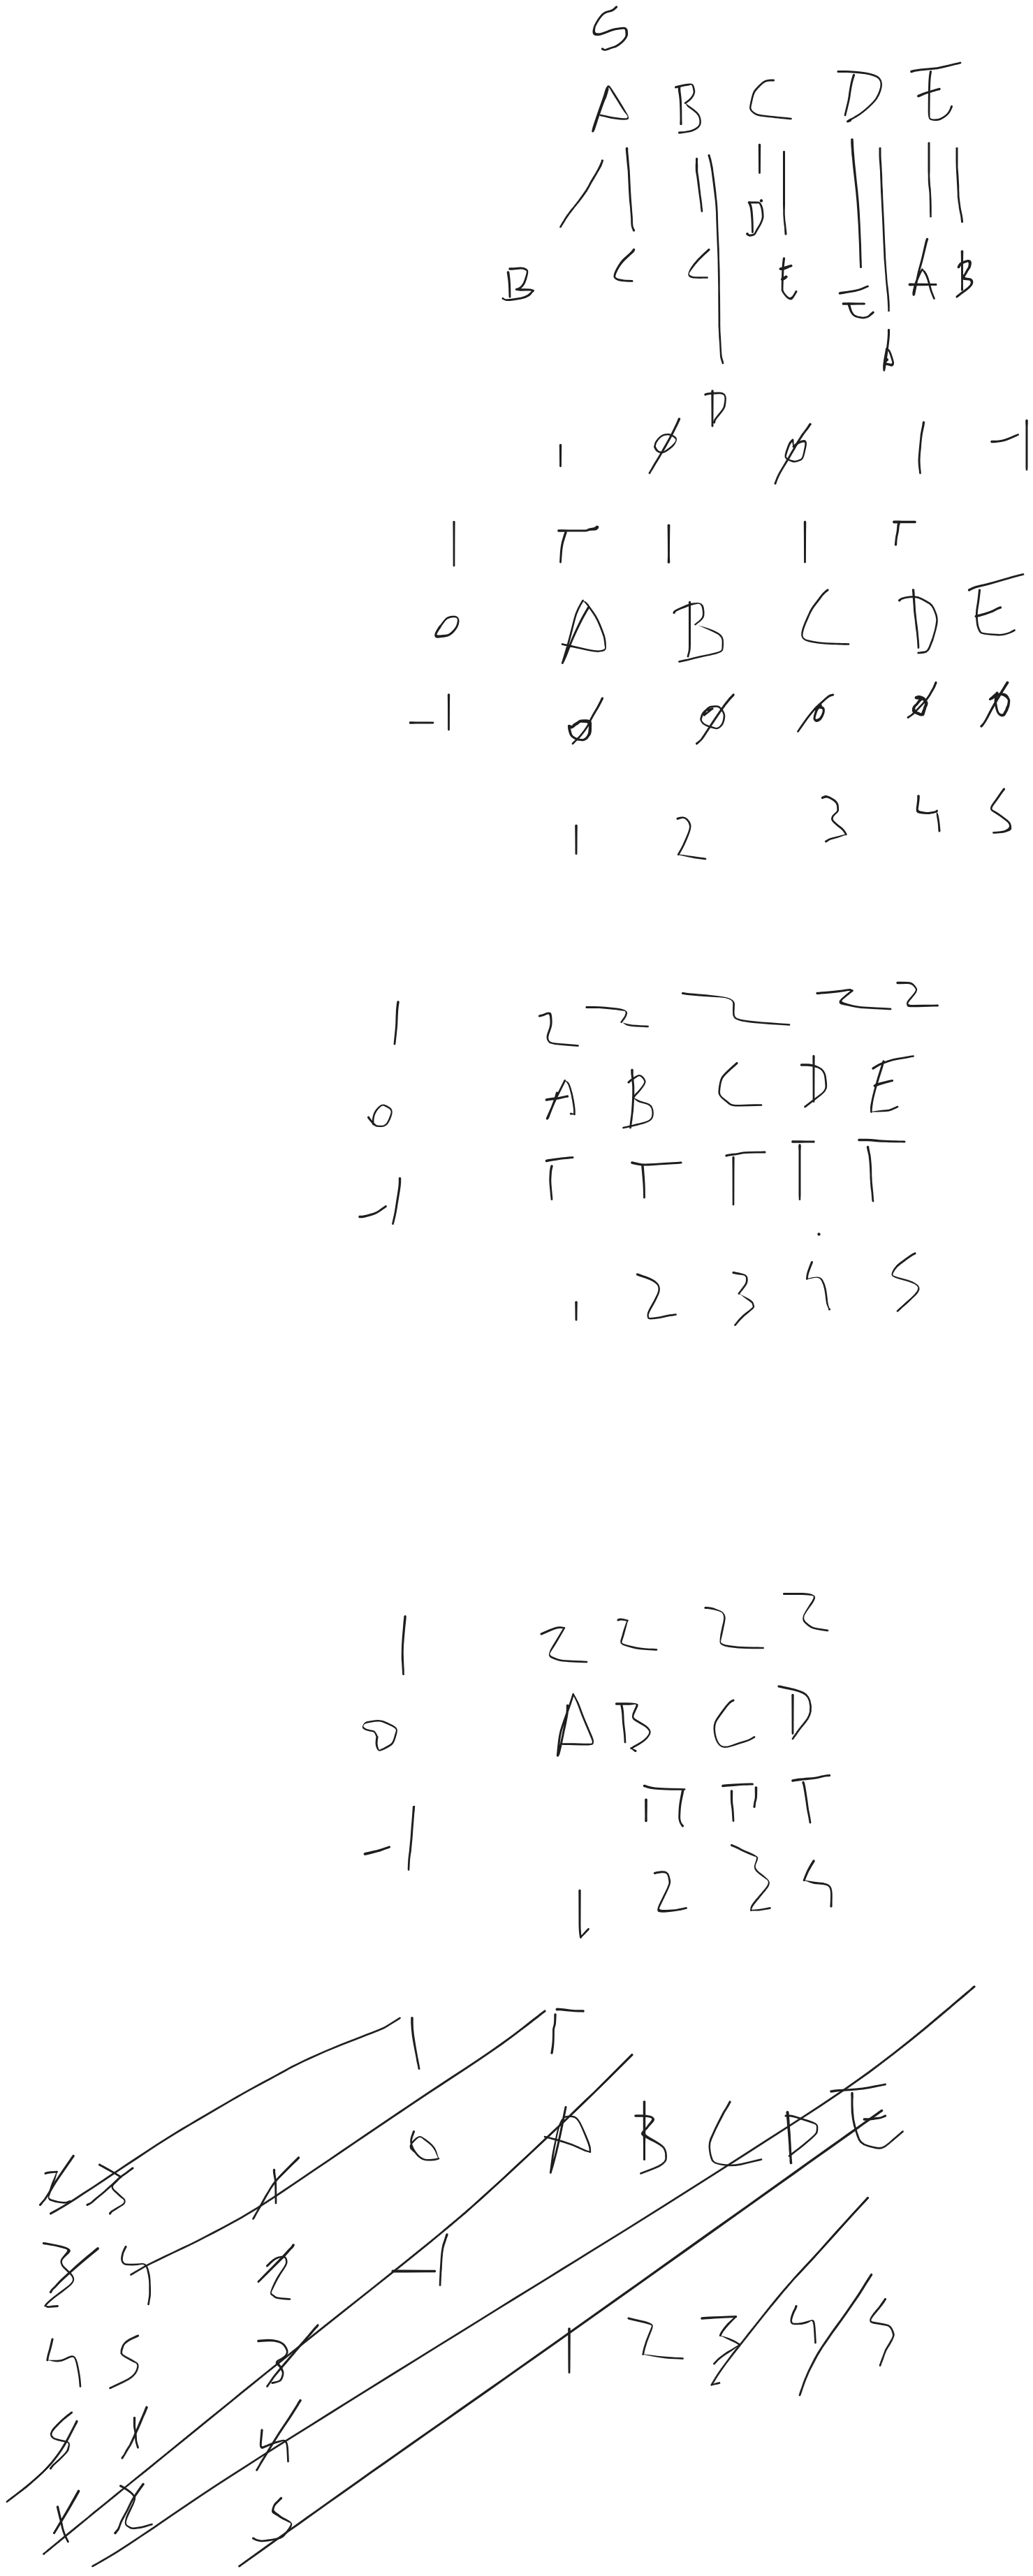 S
A B C D E
D
B C C E E A B
A
D
1 Ø Ø 1 -1
1 T 1 1 T
0 A B C D E
-1 Ø Ø Ø Ø Ø
1 2 3 4 5
1 2 2 2 2 2
0 A B C D E
-1 T T T T T
1 2 3 4 5
1 2 2 2 2
0 A B C D
-1 П П T
1 2 3 4
1 T
0 A B C D E
2 3 1
3 4 2 -1
4 5 3 1 2 3 4 5
5 1 4
1 2 5